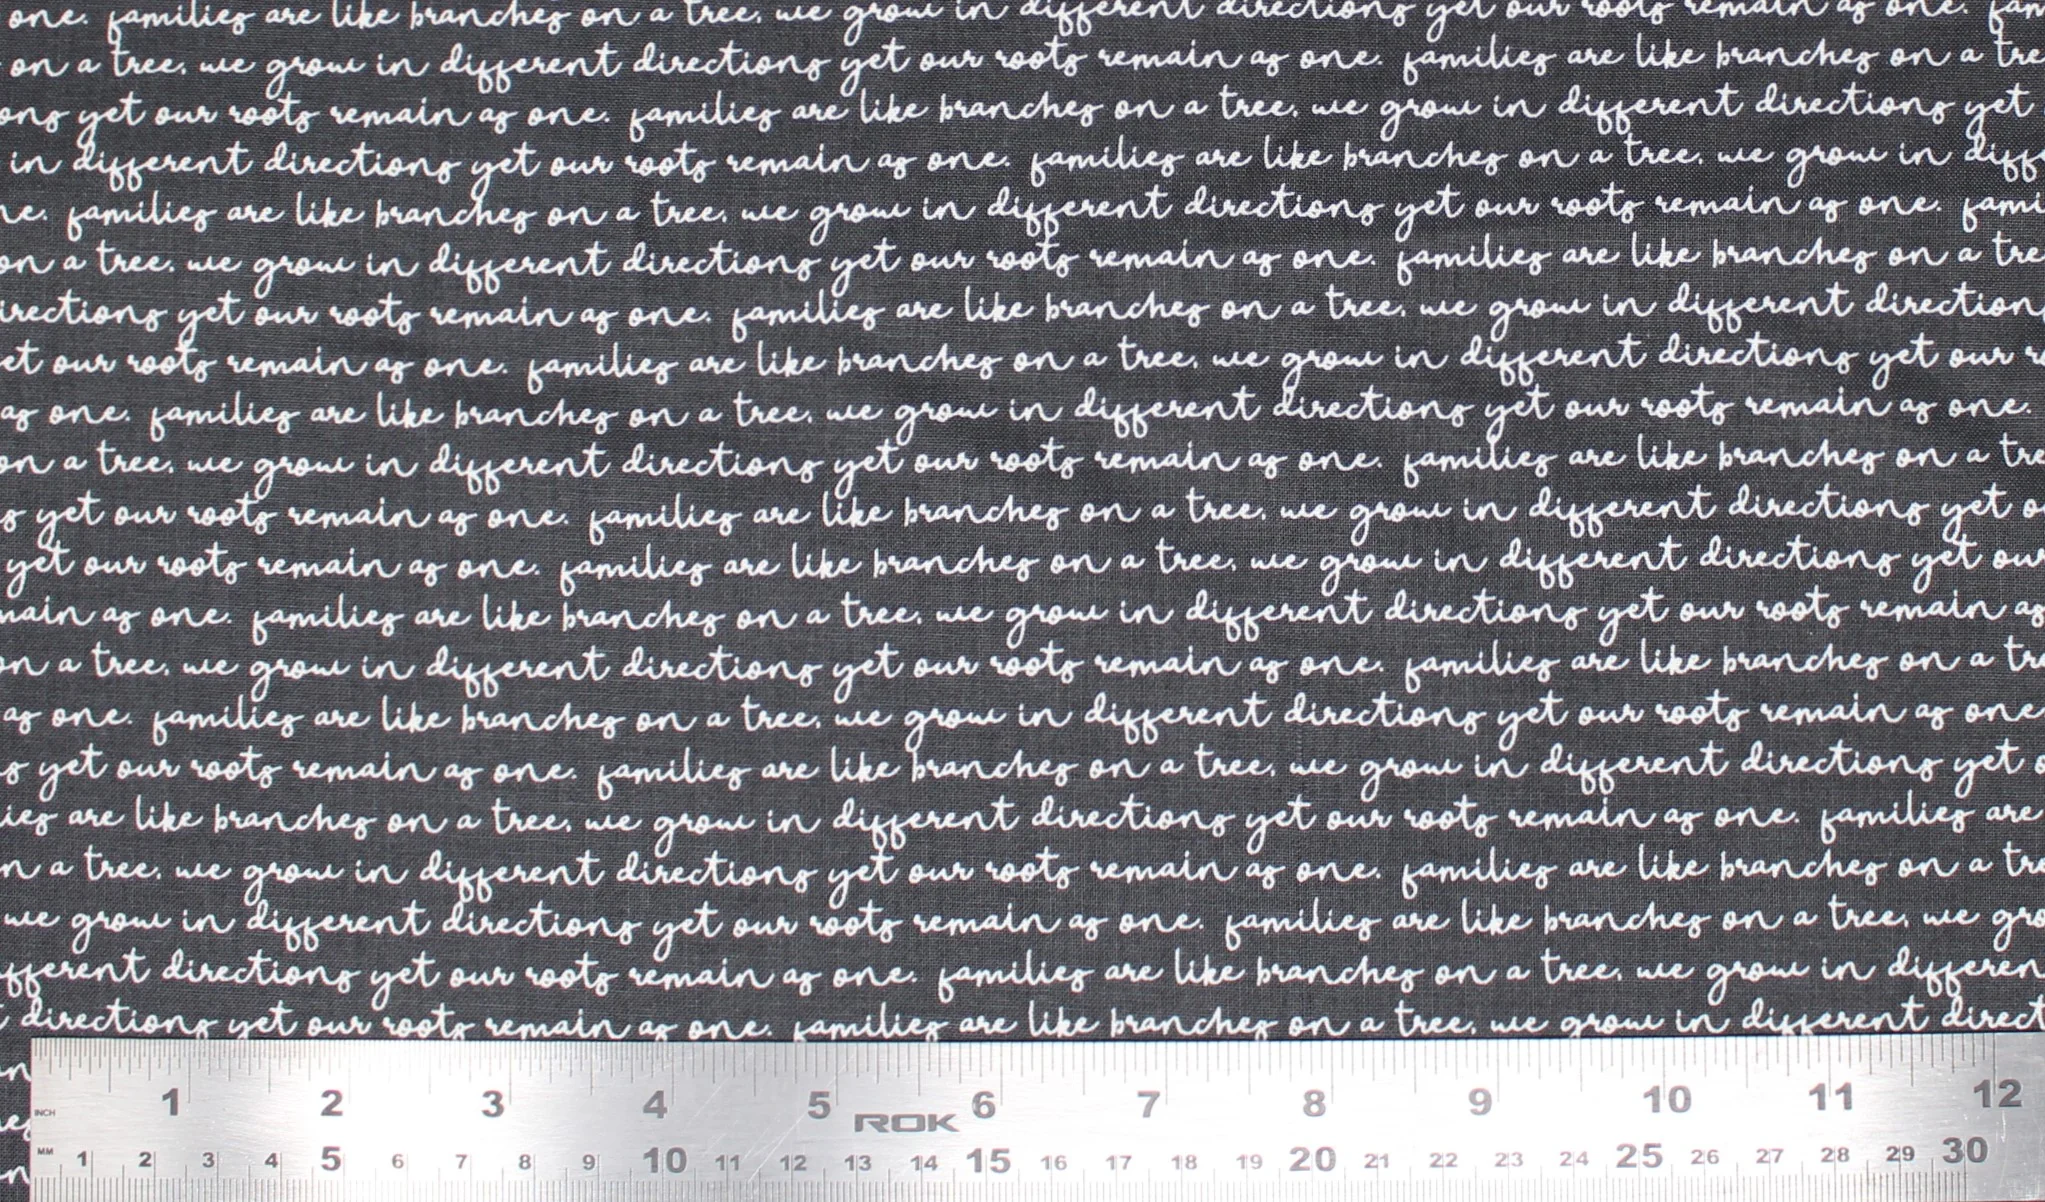 one. families are like branches on a tree, we grow in different directions yet our roots remain as one. fam
on a tree, we grow in different directions yet our roots remain as one. families are like branches on a tre
ons yet our roots remain as one. families are like branches on a tree, we grow in different directions yet
in different directions yet our roots remain as one. families are like branches on a tree, we grow in diff
ne. families are like branches on a tree, we grow in different directions yet our roots remain as one. fami
on a tree, we grow in different directions yet our roots remain as one. families are like branches on a tre
irections yet our roots remain as one. families are like branches on a tree, we grow in different direction
et our roots remain as one. families are like branches on a tree, we grow in different directions yet our r
as one. families are like branches on a tree, we grow in different directions yet our roots remain as one.
on a tree, we grow in different directions yet our roots remain as one. families are like branches on a tre
s yet our roots remain as one. families are like branches on a tree, we grow in different directions yet o
yet our roots remain as one. families are like branches on a tree, we grow in different directions yet our
main as one. families are like branches on a tree, we grow in different directions yet our roots remain as
on a tree, we grow in different directions yet our roots remain as one. families are like branches on a tre
as one. families are like branches on a tree, we grow in different directions yet our roots remain as one
s yet our roots remain as one. families are like branches on a tree, we grow in different directions yet o
ies are like branches on a tree, we grow in different directions yet our roots remain as one. families are
n a tree, we grow in different directions yet our roots remain as one. families are like branches on a tre
we grow in different directions yet our roots remain as one. families are like branches on a tree, we gro
fferent directions yet our roots remain as one. families are like branches on a tree, we grow in differen
t directions yet our roots remain as one. families are like branches on a tree, we grow in different direct
INCH 1 2 3 4 5 6 7 8 9 10 11 12
ROK
MM 1 2 3 4 5 6 7 8 9 10 11 12 13 14 15 16 17 18 19 20 21 22 23 24 25 26 27 28 29 30